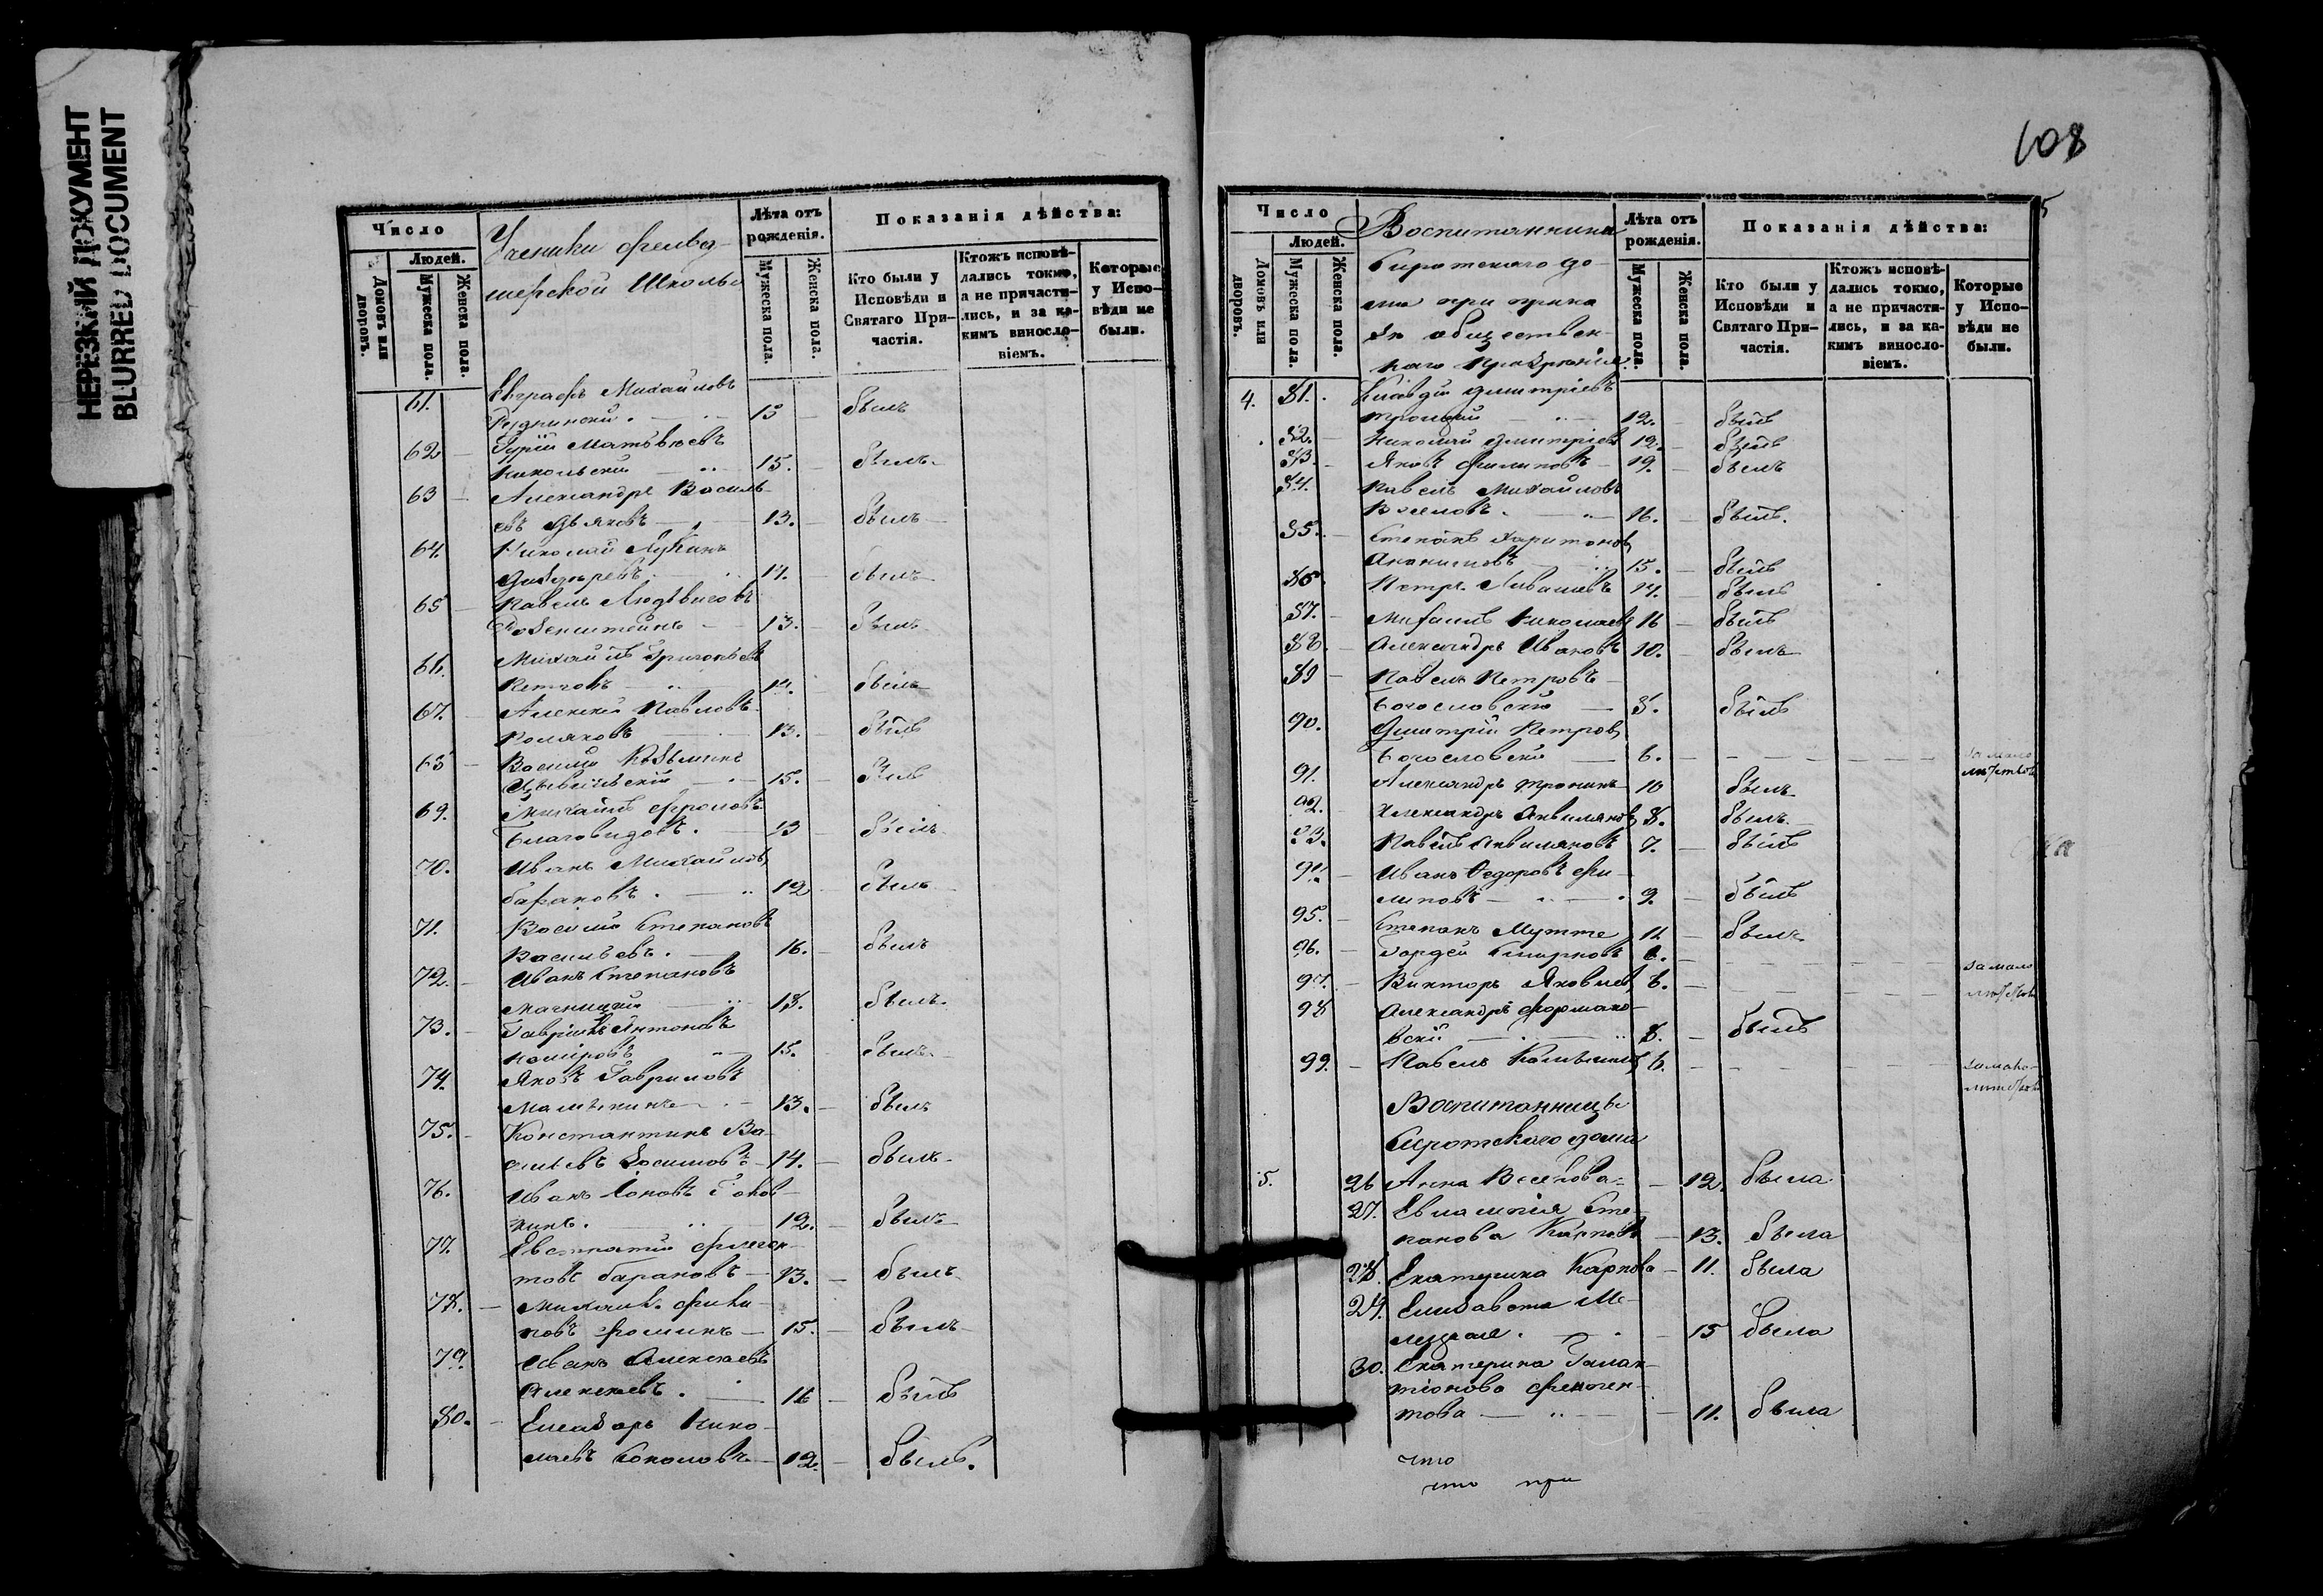 НЕРЕЗКИЙ ДОКУМЕНТ
BLURRED DOCUMENT
Число
Людей.
Домовъ или дворовъ.
Мужеска пола.
Женска пола.
Ученики фельд-
шерской Школы
Лѣта отъ рожденія.
Мужеска пола.
Женска пола.
Показанія дѣйства:
Кто были у Исповѣди и Святаго При-частія.
Ктожъ исповѣ-дались токмо, а не причасти-лись, и за ка-кимъ винослo-віемъ.
Которые у Испо-вѣди не были.
61. Евграфъ Михайловъ
Рудринский. 15 былъ
62 Гурій Матвѣевъ
Никольский 15. былъ
63 Александръ Василь-
евъ Дьяковъ 13. былъ
64. Николай Лукинъ
14. былъ
65 Павелъ Людвиговъ
Розенштейнъ 13. былъ
66. Михайлъ Григорьевъ
Петровъ 14. былъ
67. Алексѣй Павловъ
Поляковъ 13. былъ
68 Василій Козьминъ
15. былъ
69. Михайлъ Фроловъ
Благовидовъ. 13 былъ
70. Иванъ Михайловъ
Барановъ. 12 былъ
71. Василій Степановъ
Васильевъ. 16. былъ
72. Иванъ Степановъ
13. былъ
73. Гаврiилъ Антоновъ
15. былъ
74. Яковъ Гавриловъ
Малышкинъ 13. былъ
75. Константинъ Ва-
сильевъ Зосимовъ 14. былъ
76. Иванъ
12. былъ
77. Евстратій Флеген-
товъ Барановъ 13. былъ
78. Михаилъ Фили-
повъ Фоминъ 15. былъ
79. Иванъ Алексѣевъ
Алексѣевъ. 16 былъ
80. Елеазаръ Нико-
лаевъ Соколовъ 12. былъ.
108
5
Число
Людей.
Домовъ или дворовъ.
Мужеска пола.
Женска пола.
Воспитанники
Сиротскаго до-
ма при прика
зѣ обществен-
наго Призрѣнія
Лѣта отъ рожденія.
Мужеска пола.
Женска пола.
Показанія дѣйства:
Кто были у Исповѣди и Святаго При-частія.
Ктожъ исповѣ-дались токмо, а не причасти-лись, и за ка-кимъ винослo-віемъ.
Которые у Испо-вѣди не были.
4. 81. Клавдій Дмитріевъ
Троицкий 12. былъ
82. Николай Дмитріевъ 12. былъ
83. Яковъ Филиповъ 12. былъ
84. Павелъ Михайловъ
16. былъ.
85. Степанъ Харитоновъ
15. былъ
86 Петръ Ливановъ 14. былъ
87. Михаилъ Николаевъ 16 былъ
88. Александръ Ивановъ 10. былъ
89 Павелъ Петровъ
Богословский 8. былъ
90. Дмитрій Петровъ
Богословский 6. за мало
лѣтствомъ
91. Александръ Тронинъ 10 былъ
92. Александръ Аквиляновъ 8. былъ
93. Павелъ Аквиляновъ 7. былъ
94. Иванъ Федоровъ Фи-
липовъ 9. былъ
95. Степанъ Мутте 11 былъ
96. Гордей Смирновъ 6.
за мало
97. Викторъ Яковлевъ 6. лѣтствомъ
98 Александръ Формако-
вскій 8. былъ
99. Павелъ 6. за мало-
лѣтствомъ
Воспитанницы
Сиротскаго дома
5. 26 Анна Веселова 12. была
27. Евлампія Сте-
панова Карпова 13. была
28. Екатерина Карпова 11. была
29. Елизавета Ме-
15 была
30. Екатерина Галак-
тіонова Флеген-
това 11. была
что
что при